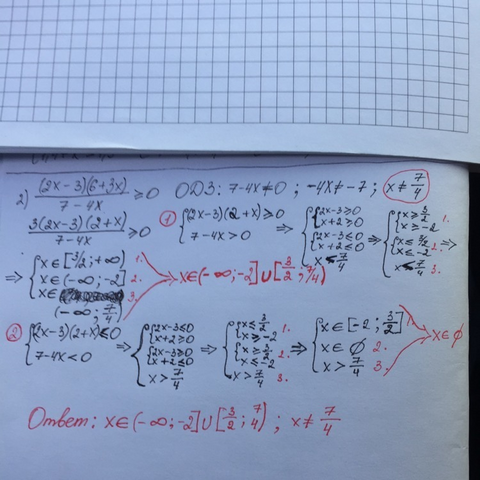 2) (2x-3)(6+3x)/(7-4x) ≥ 0 ОДЗ: 7-4x≠0 ; -4x≠-7 ; x≠7/4
3(2x-3)(2+x)/(7-4x) ≥ 0 ① { (2x-3)(2+x)≥0 ; 7-4x>0 ⇒ { { 2x-3≥0 ; x+2≥0 ; { 2x-3≤0 ; x+2≤0 ; x<7/4 ⇒ { { x≥3/2 ; x≥-2 1. ; { x≤3/2 ; x≤-2 2. ; x<7/4 3. ⇒
⇒ { x∈[3/2;+∞) 1. ; x∈(-∞;-2] 2. ; x∈(-∞;7/4) 3. ⇒ x∈(-∞;-2]∪[3/2;7/4)
② { (2x-3)(2+x)≤0 ; 7-4x<0 ⇒ { { 2x-3≤0 ; x+2≥0 ; { 2x-3≥0 ; x+2≤0 ; x>7/4 ⇒ { { x≤3/2 ; x≥-2 1. ; { x≥3/2 ; x≤-2 2. ; x>7/4 3. ⇒ { x∈[-2;3/2] 1. ; x∈∅ 2. ; x>7/4 3. x∈∅
Ответ: x∈(-∞;-2]∪[3/2;7/4) ; x≠7/4